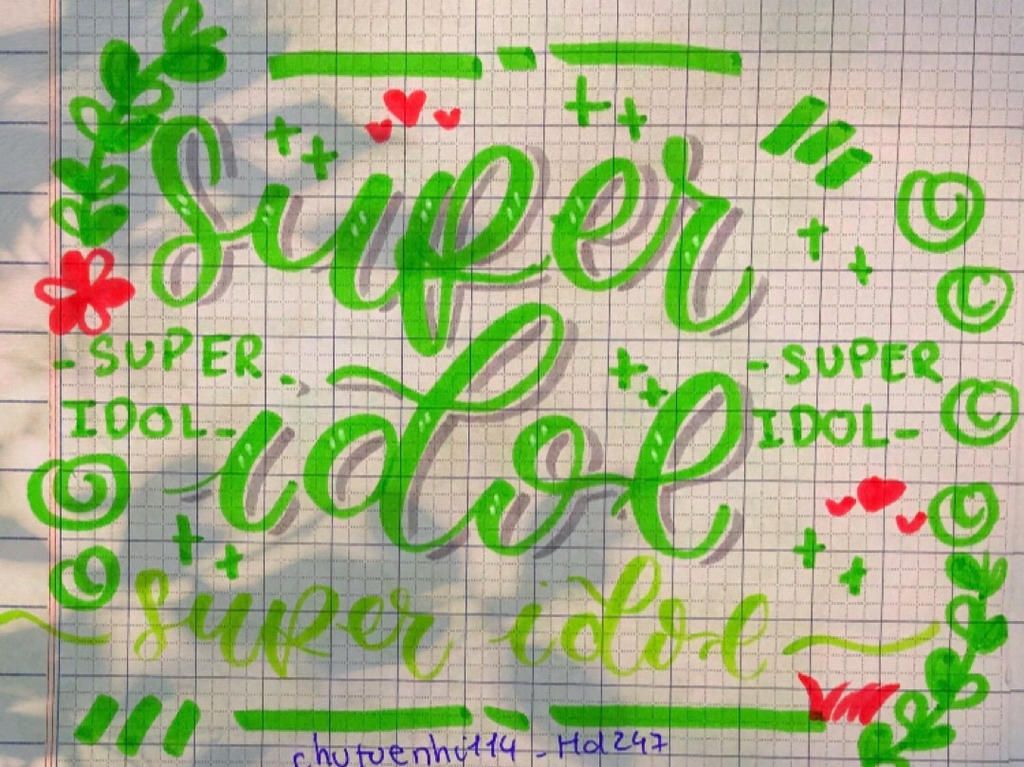 super
- SUPER
IDOL -
idol
- SUPER
IDOL -
super idol
chutuenhi114 - Hd247